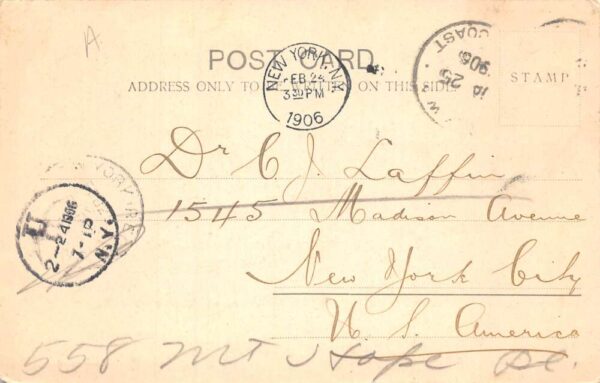 A
POST CARD
ADDRESS ONLY TO BE WRITTEN ON THIS SIDE.
STAMP
NEW YORK, N.Y.
FEB 24
3 30 PM
1906
COAST
25
1906
W
Dr C. J. Laffin
1545 Madison Avenue
New York City
U. S. America
2-24 1906
7-1 P
N.Y.
558 Mt Hope Pl.